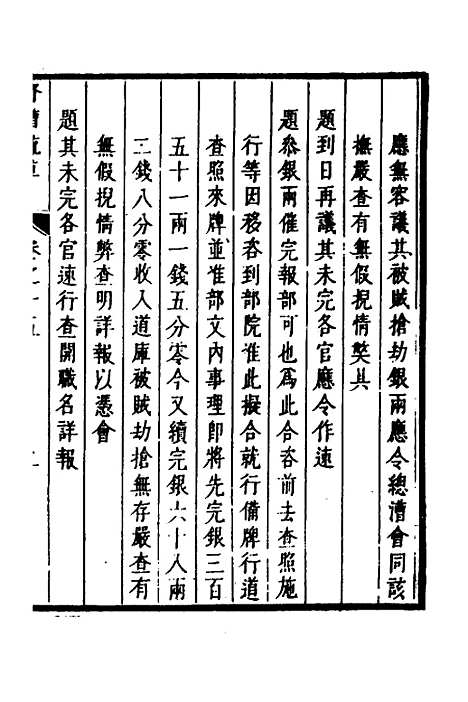 應無容議其被賊搶劫銀兩應令總漕會同該
撫嚴查有無假捏情獘具
題到日再議其未完各官應令作速
題叅銀兩催完報部可也爲此合咨前去查照施
行等因移咨到部院准此擬合就行備牌行道
查照來牌並准部文內事理即將先完銀三百
五十一兩一錢五分零今又續完銀六十八兩
三錢八分零收入道庫被賊劫搶無存嚴查有
無假捏情弊查明詳報以憑會
題其未完各官速行查開職名詳報
漕疏草
卷之十五